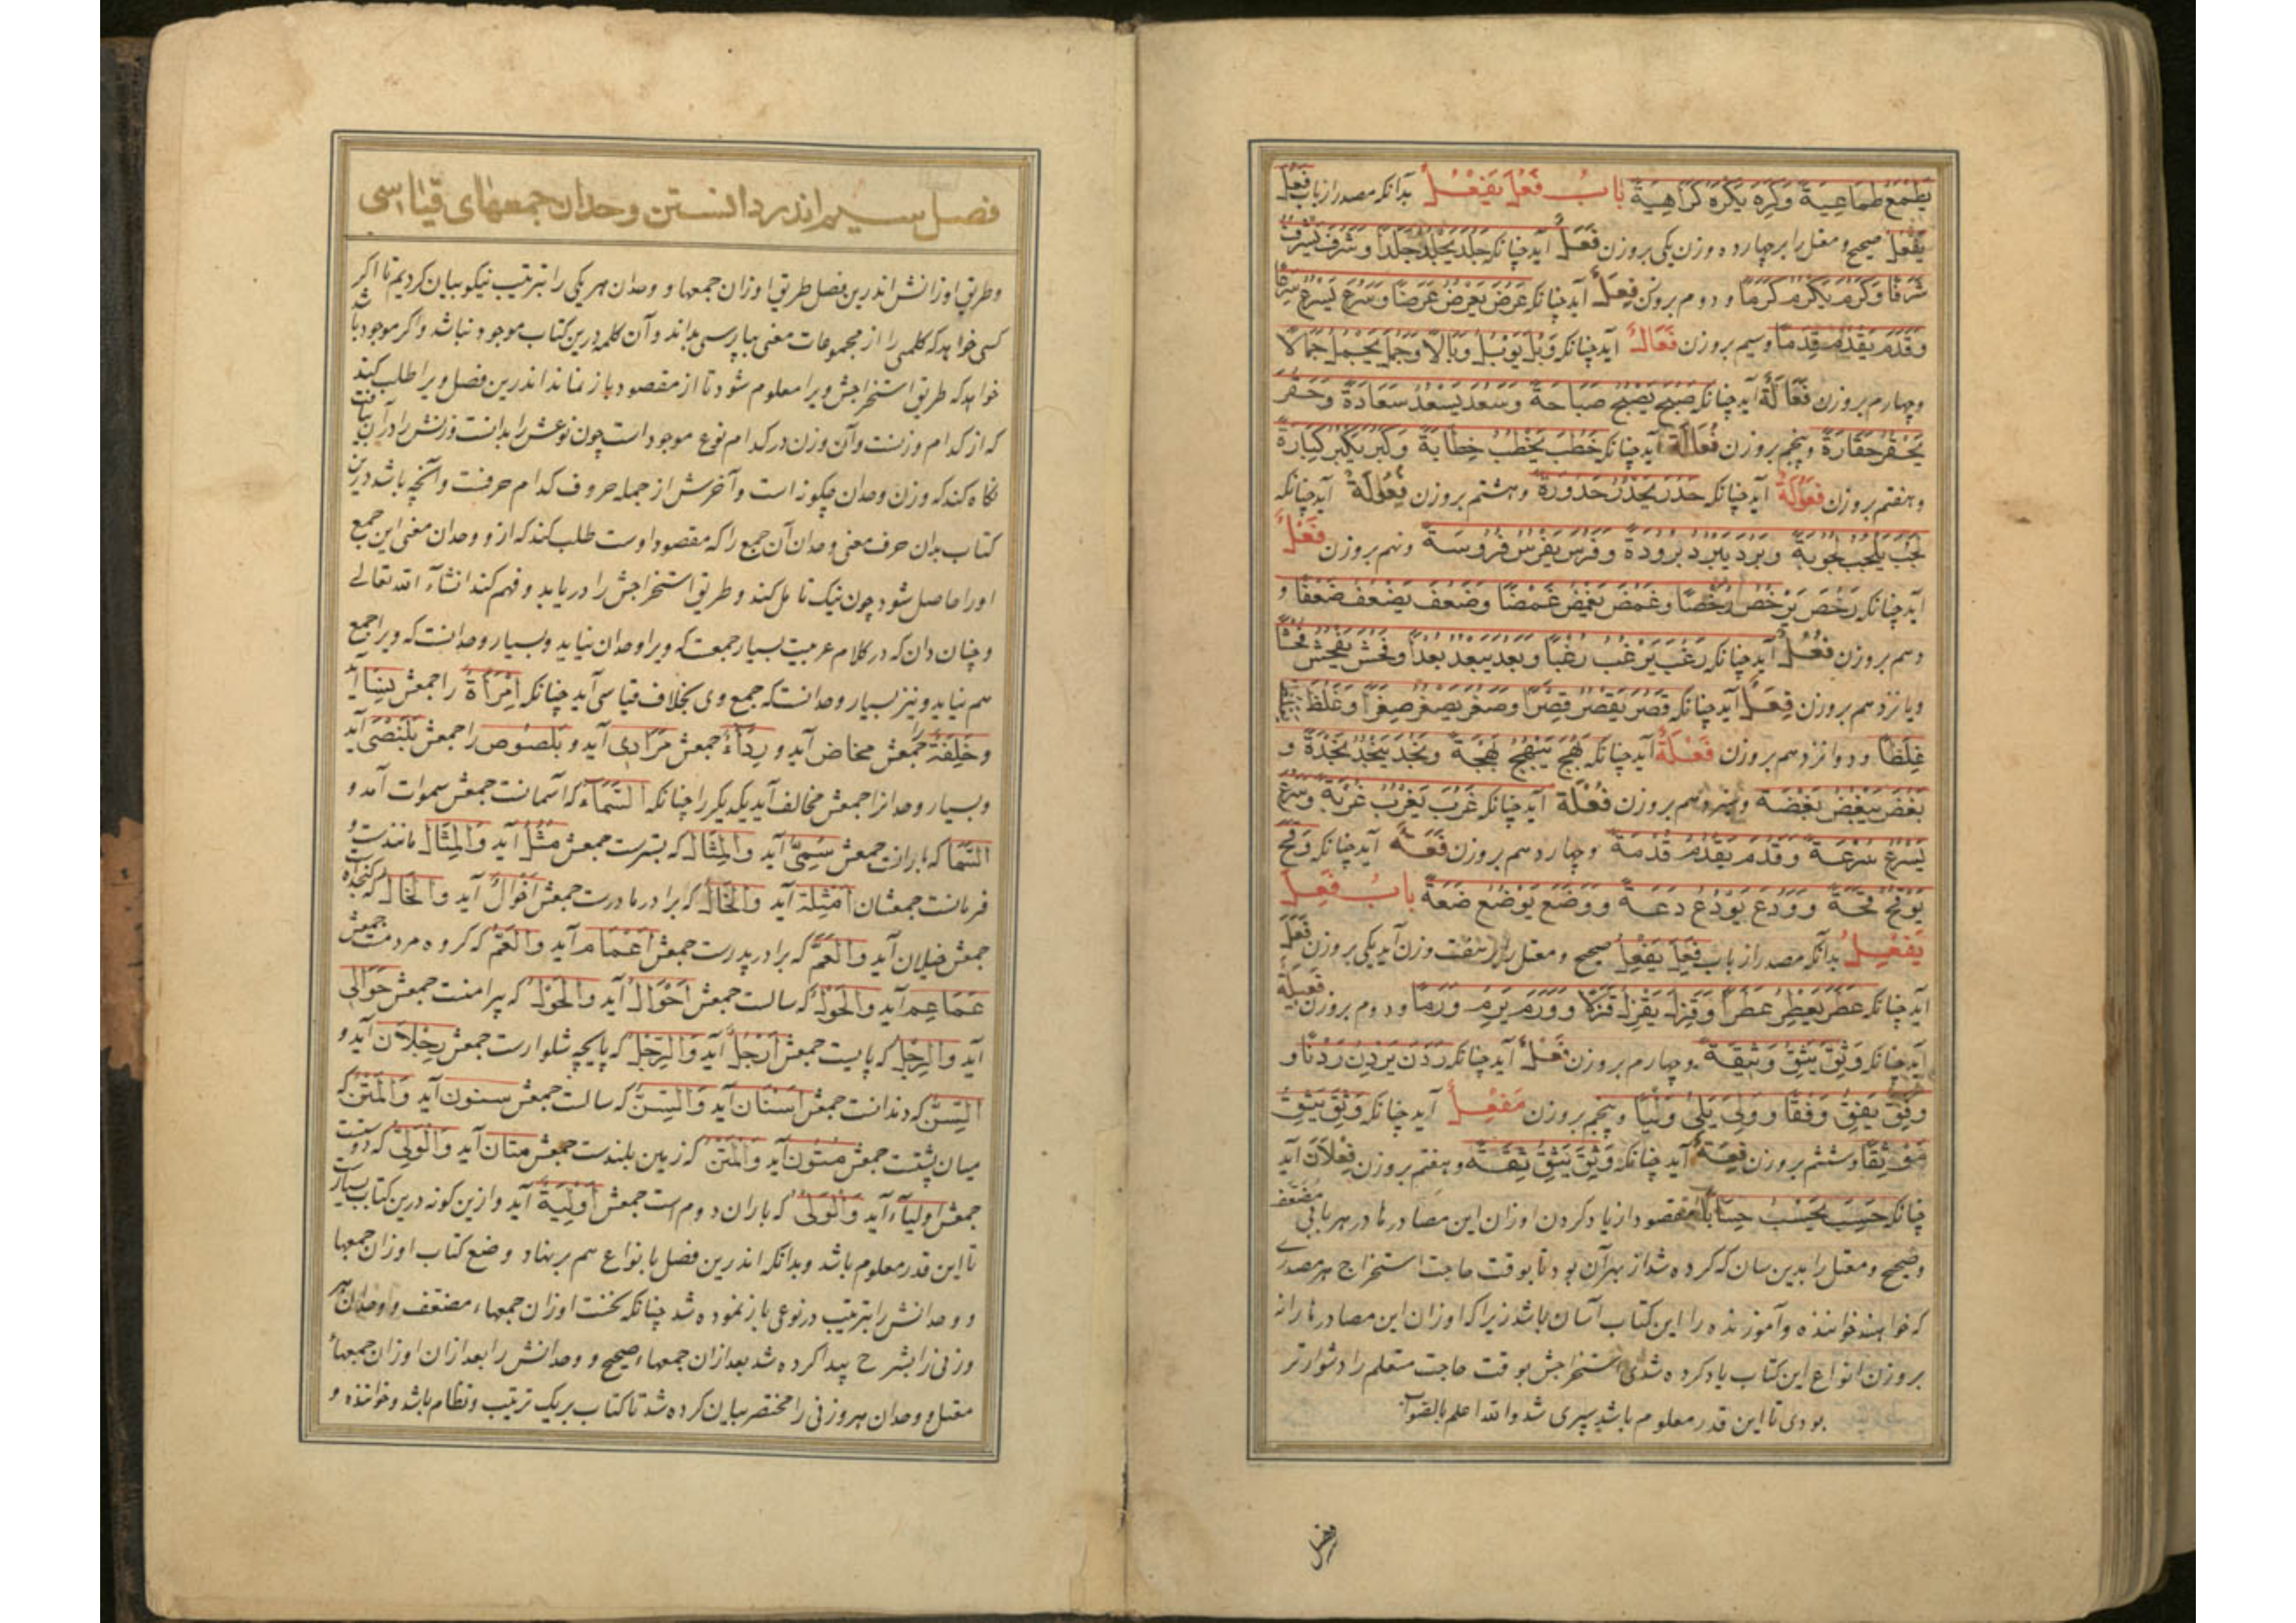 يَطْمَعُ طَمَاعِيَةً وَكَرِهَ يَكْرَهُ كَرَاهِيَةً بابُ فَعُلَ يَفْعُلُ بدانکه مصدر از باب فَعُلَ
يَفْعُلُ صحیح و معتل را بر چهارده وزن یکی بر وزن فَعَلٌ آید چنانکه جَلُدَ يَجْلُدُ جَلَدًا وَشَرُفَ يَشْرُفُ
شَرَفًا وَكَرُمَ يَكْرُمُ كَرَمًا و دوم بر وزن فِعَلٌ آید چنانکه عَرُضَ يَعْرُضُ عِرَضًا وَسَرُعَ يَسْرُعُ سِرَعًا
وَقَدُمَ يَقْدُمُ قِدَمًا و سیم بر وزن فَعَالٌ آید چنانکه وَبُلَ يَوْبُلُ وَبَالًا وَجَمُلَ يَجْمُلُ جَمَالًا
و چهارم بر وزن فَعَالَةٌ آید چنانکه صَبُحَ يَصْبُحُ صَبَاحَةً وَسَعُدَ يَسْعُدُ سَعَادَةً وَحَقُرَ
يَحْقُرُ حَقَارَةً و پنجم بر وزن فُعَالَةٌ آید چنانکه خَطُبَ يَخْطُبُ خِطَابَةً وَكَبُرَ يَكْبُرُ كِبَارَةً
و هفتم بر وزن فَعُولَةٌ آید چنانکه حَدُرَ يَحْدُرُ حَدُورَةً و هشتم بر وزن فُعُولَةٌ آید چنانکه
وَبَرُدَ يَبْرُدُ بُرُودَةً وَفَرُسَ يَفْرُسُ فُرُوسَةً و نهم بر وزن فَعْلٌ
آید چنانکه رَخُصَ يَرْخُصُ رُخْصًا وَغَمُضَ يَغْمُضُ غَمْضًا وَضَعُفَ يَضْعُفُ ضَعْفًا و
دهم بر وزن فُعْلٌ آید چنانکه رَغُبَ يَرْغُبُ رُغْبًا وَبَعُدَ يَبْعُدُ بُعْدًا وَفَحُشَ يَفْحُشُ فُحْشًا
و یازدهم بر وزن فِعَلٌ آید چنانکه قَصُرَ يَقْصُرُ قِصَرًا وَصَغُرَ يَصْغُرُ صِغَرًا وَغَلُظَ
غِلَظًا و دوازدهم بر وزن فَعْلَةٌ آید چنانکه بَهُجَ يَبْهُجُ بَهْجَةً وَنَجُدَ يَنْجُدُ نَجْدَةً و
بَغُضَ يَبْغُضُ بَغْضَةً و سیزدهم بر وزن فُعْلَةٌ آید چنانکه غَرُبَ يَغْرُبُ غُرْبَةً وَسَرُعَ
يَسْرُعُ سُرْعَةً وَقَدُمَ يَقْدُمُ قُدْمَةً و چهاردهم بر وزن فَعَةٌ آید چنانکه وَقُحَ
يَوْقُحُ قَحَةً وَوَدُعَ يَوْدُعُ دَعَةً وَوَضُعَ يَوْضُعُ ضَعَةً بابُ فَعِلَ
يَفْعِلُ بدانکه مصدر از باب فَعِلَ يَفْعِلُ صحیح و معتل را هفت وزن آید یکی بر وزن فَعَلٌ
آید چنانکه عَطِرَ يَعْطِرُ عَطَرًا وَقَزِلَ يَقْزِلُ قَزَلًا وَوَرِمَ يَرِمُ وَرَمًا و دوم بر وزن فَعِيلَةٌ
آید چنانکه وَثِقَ يَثِقُ وَثِيقَةً و چهارم بر وزن فَعْلٌ آید چنانکه رَدِنَ يَرْدِنُ رَدْنًا و
وَفِقَ يَفِقُ وَفْقًا وَوَلِيَ يَلِي وَلْيًا و پنجم بر وزن مَفْعِلٌ آید چنانکه وَثِقَ يَثِقُ
مَوْثِقًا و ششم بر وزن فِعَةٌ آید چنانکه وَثِقَ يَثِقُ ثِقَةً و هفتم بر وزن فِعْلَانٌ آید
چنانکه حَسِبَ يَحْسِبُ مقصود از یاد کردن اوزان این مصادرها در هر بابی مضعف
و صحیح و معتل را بدین سان که کرده شد از بهر آن بود تا بوقت حاجت استخراج هر مصدری
که خواهند خواننده و آموزنده را این کتاب آسان باشد زیرا که اوزان این مصادرها را نه
بر وزن انواع این کتاب یاد کرده شدی استخراجش بوقت حاجت متعلم را دشوارتر
بودی تا این قدر معلوم باشد سپری شد والله اعلم بالصواب
فصل
فصل سیم اندر دانستن وحدان جمعهای قیاسی
و طریق اوزانش اندرین فصل طریق اوزان جمعها و وحدان هر یکی را بترتیب نیکو بیان کردیم تا اگر
کسی خواهد که کلمهٔ را از مجموعات معنی بپارسی بداند و آن کلمه درین کتاب موجود نباشد و اگر موجود باشد
خواهد که طریق استخراجش ویرا معلوم شود تا از مقصود باز نماند اندرین فصل ویرا طلب کند
که از کدام وزنست و آن وزن در کدام نوع موجود است چون نوعش را بدانست وزنش را در آن بیافت
نگاه کند که وزن وحدان چگونه است و آخرش از جمله حروف کدام حرفست و آنچه باشد درین
کتاب بدان حرف معنی وحدان آن جمع را که مقصود اوست طلب کند که از و وحدان معنی این جمع
او را حاصل شود چون نیک تامل کند و طریق استخراجش را دریابد و فهم کند انشآء الله تعالی
و چنان دان که در کلام عربیت بسیار جمعست که ویرا وحدان نیاید و بسیار وحدانست که ویرا جمع
هم نیاید و نیز بسیار وحدانست که جمع وی بخلاف قیاسی آید چنانکه اِمْرَأَةٌ را جمعش نِسَاءٌ آید
و خَلِفَةٌ را جمعش مخاض آید و رِدَاءٌ جمعش مَرَادِی آید و بَلَصُوص را جمعش بَلَنْصَى آید
و بسیار وحدانرا جمعش مخالف آید یکدیگر را چنانکه السَّمَاءُ که آسمانست جمعش سموات آمد و
السَّمَا که بارانست جمعش سُمِیٌّ آید وَالْمِثَالُ که بسترست جمعش مُثُلٌ آید وَالْمِثَالُ مانندست و
فرمانست جمعشان اَمْثِلَة آید وَالْخَالُ که برادر مادرست جمعش اَخْوَالٌ آید وَالْخَالُ که کنجداه است
جمعش خیلان آید وَالْعَمُّ که برادر پدرست جمعش اَعْمَام آید وَالْعَمُّ که گروه مردمست جمعش
عَمَاعِم آید وَالْحَوْلُ که سالست جمعش اَحْوَالٌ آید وَالْحَوْلُ که پیرامنست جمعش حَوَالَى
آید وَالرِّجْلُ که پایست جمعش اَرْجُلٌ آید وَالرِّجْلُ که پایچه شلوارست جمعش رِجْلَانٌ آید و
السِّنُّ که دندانست جمعش اَسْنَان آید وَالسِّنُّ که سالست جمعش سنون آید وَالْمَتْنُ که
میان پشتست جمعش مُتُون آید وَالْمَتْنُ که زمین بلندست جمعش متان آید وَالْوَلِیُّ که دوستست
جمعش اولیآء آید وَالْوَلِیُّ که باران دوم است جمعش اَوْلِیَةٌ آید و ازین گونه درین کتاب بسیارست
تا این قدر معلوم باشد و بدانکه اندرین فصل بانواع هم بر نهاد وضع کتاب اوزان جمعها
و وحدانش را بترتیب در نوعی باز نموده شد چنانکه نخست اوزان جمعهاء مضعف و وحدان هر
وزنی را بشرح پیدا کرده شد بعد از آن جمعهاء صحیح و وحدانش را بعد از آن اوزان جمعهاء
معتل و وحدان هر وزنی را مختصر بیان کرده شد تا کتاب بر یک ترتیب و نظام باشد و خواننده و